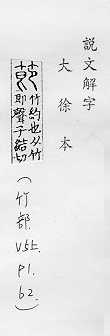 説文解字
大徐本
節
竹約也从竹
即聲子結切
(竹部.
V5上.
P1.
b2.)